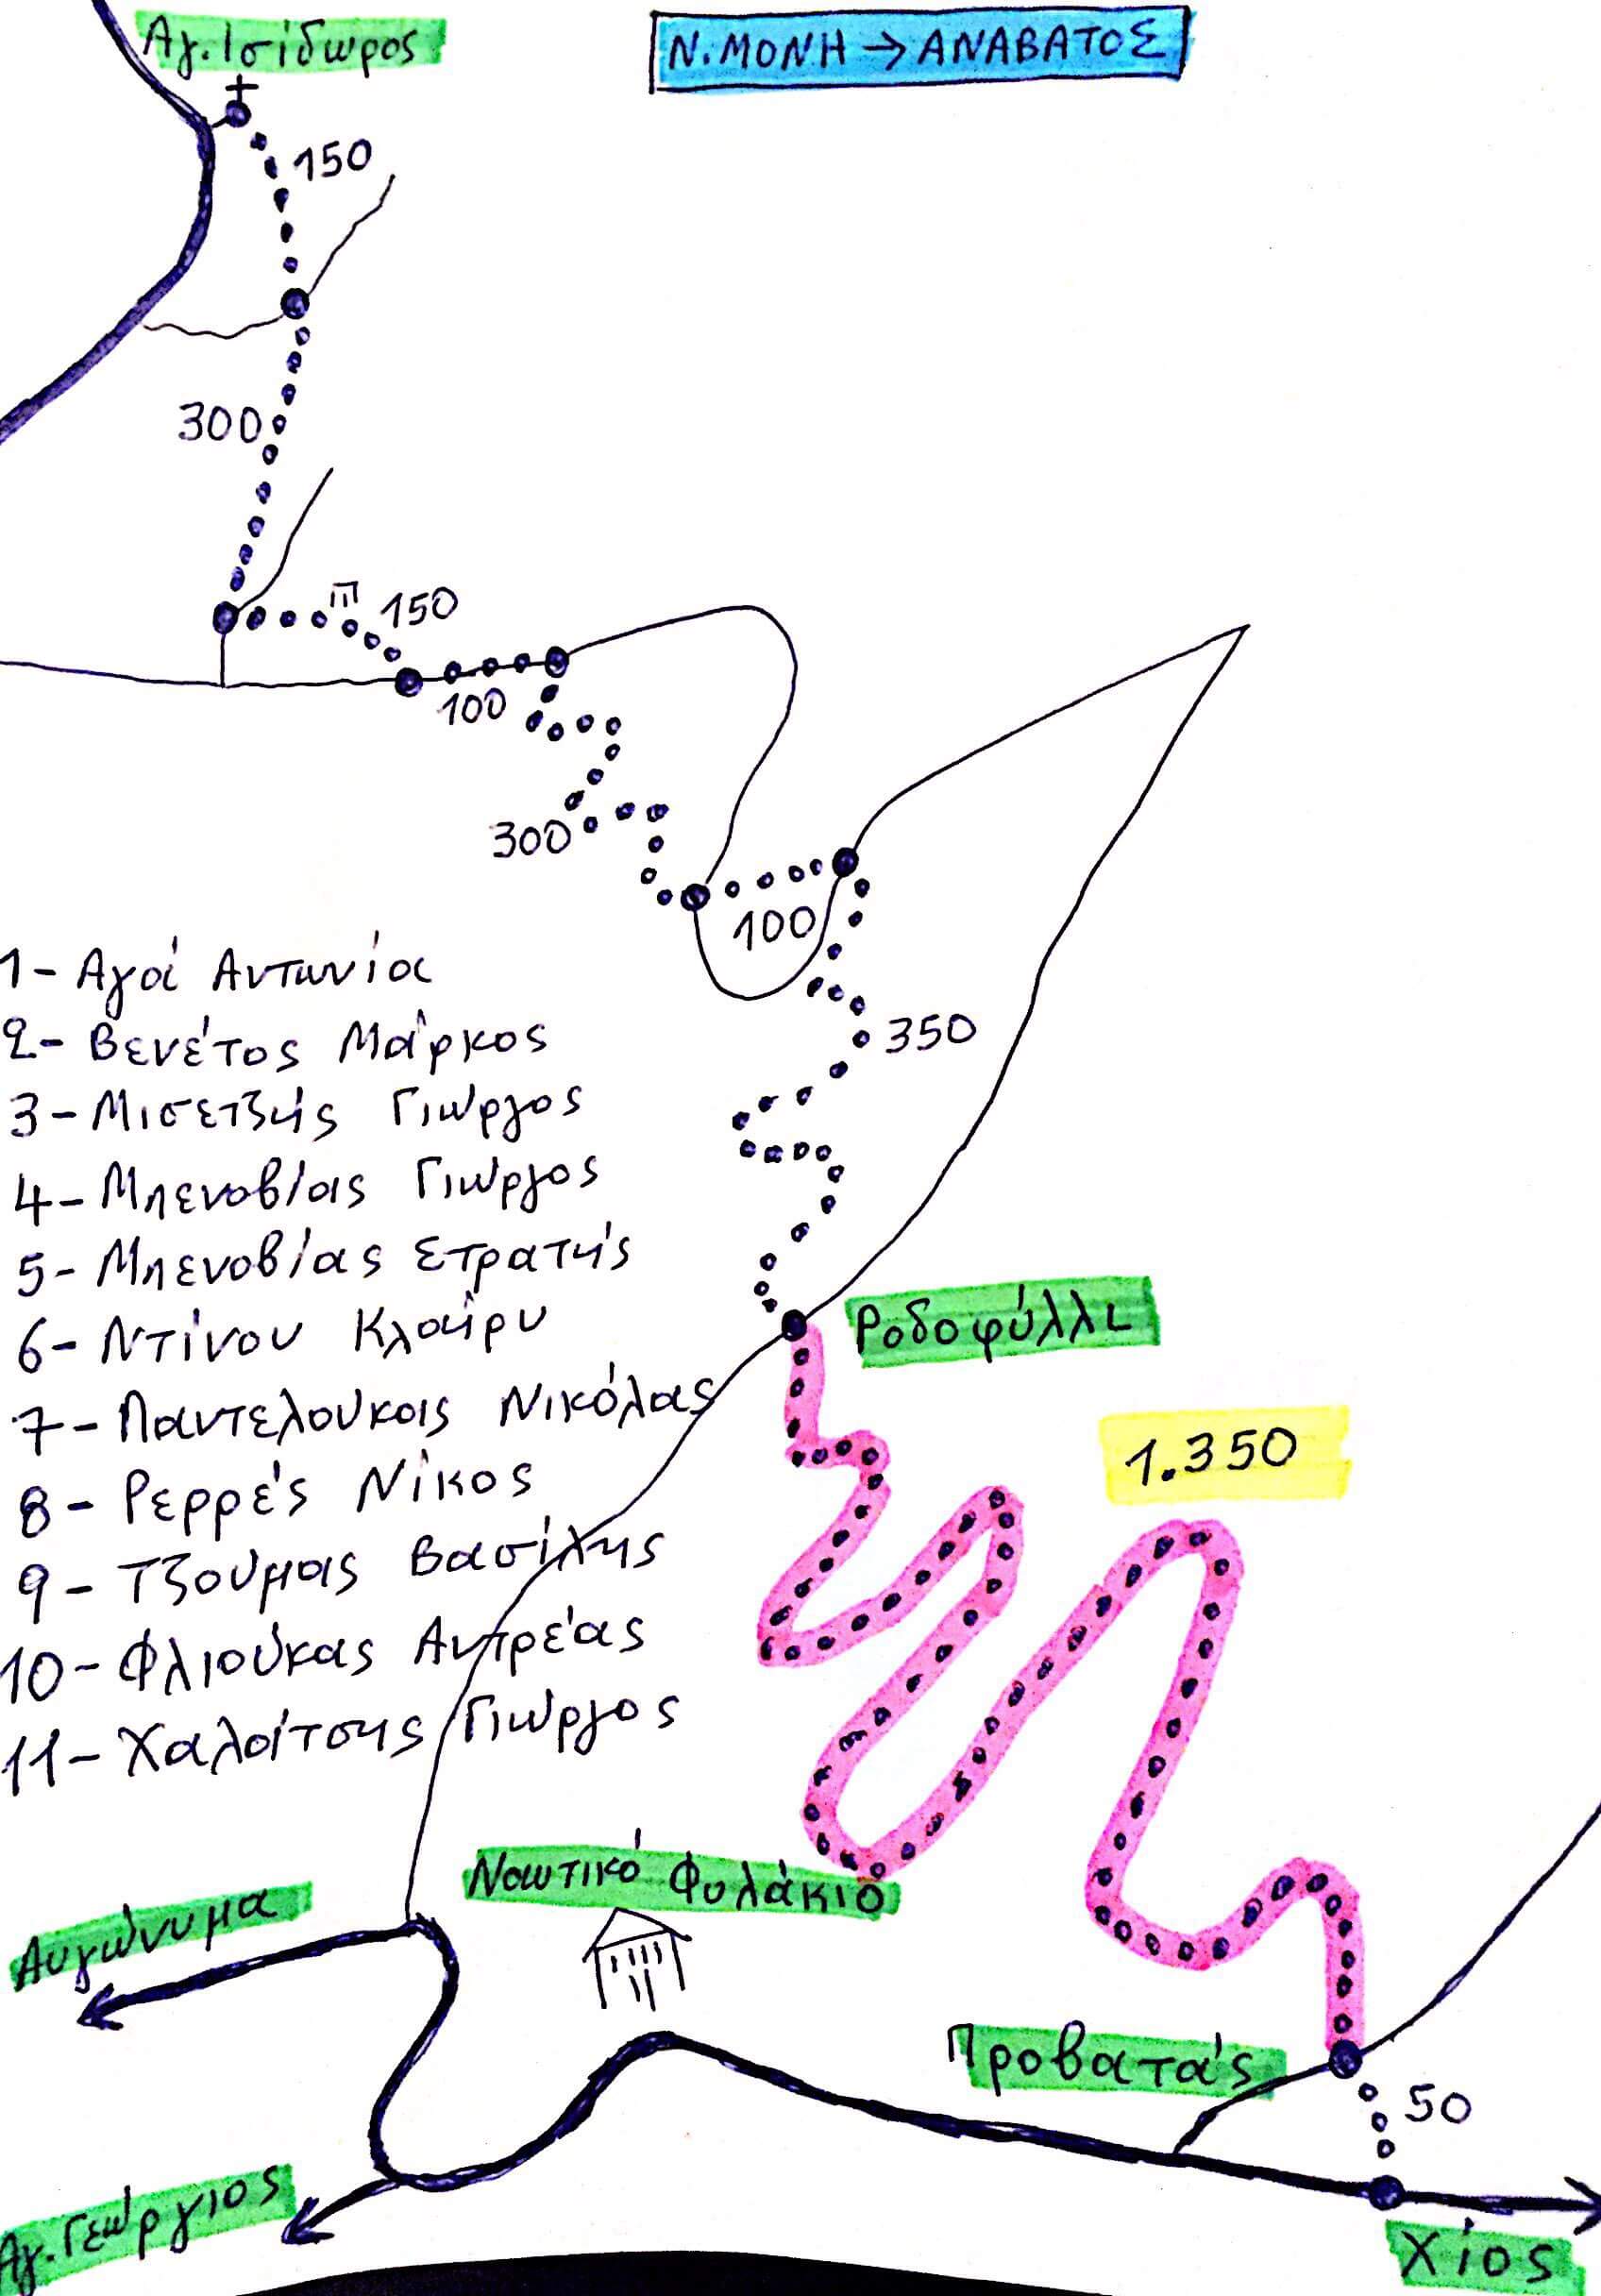 Αγ. Ισίδωρος
Ν. ΜΟΝΗ → ΑΝΑΒΑΤΟΣ
150
300
150
100
300
100
350
1- Αγοί Αντωνίοι
2- Βενέτος Μάρκος
3- Μισετζής Γιώργος
4- Μπενοβίας Γιώργος
5- Μπενοβίας Στρατής
6- Ντίνου Κλαίρη
7- Παντελούκας Νικόλας
8- Ρερρές Νίκος
9- Τζούμας Βασίλης
10- Φλιούκας Αντρέας
11- Χαλάτσης Γιώργος
Ροδοφύλλι
1.350
Ναυτικό Φυλάκιο
Αυγώνυμα
Προβατάς
50
Αγ. Γεώργιος
Χίος